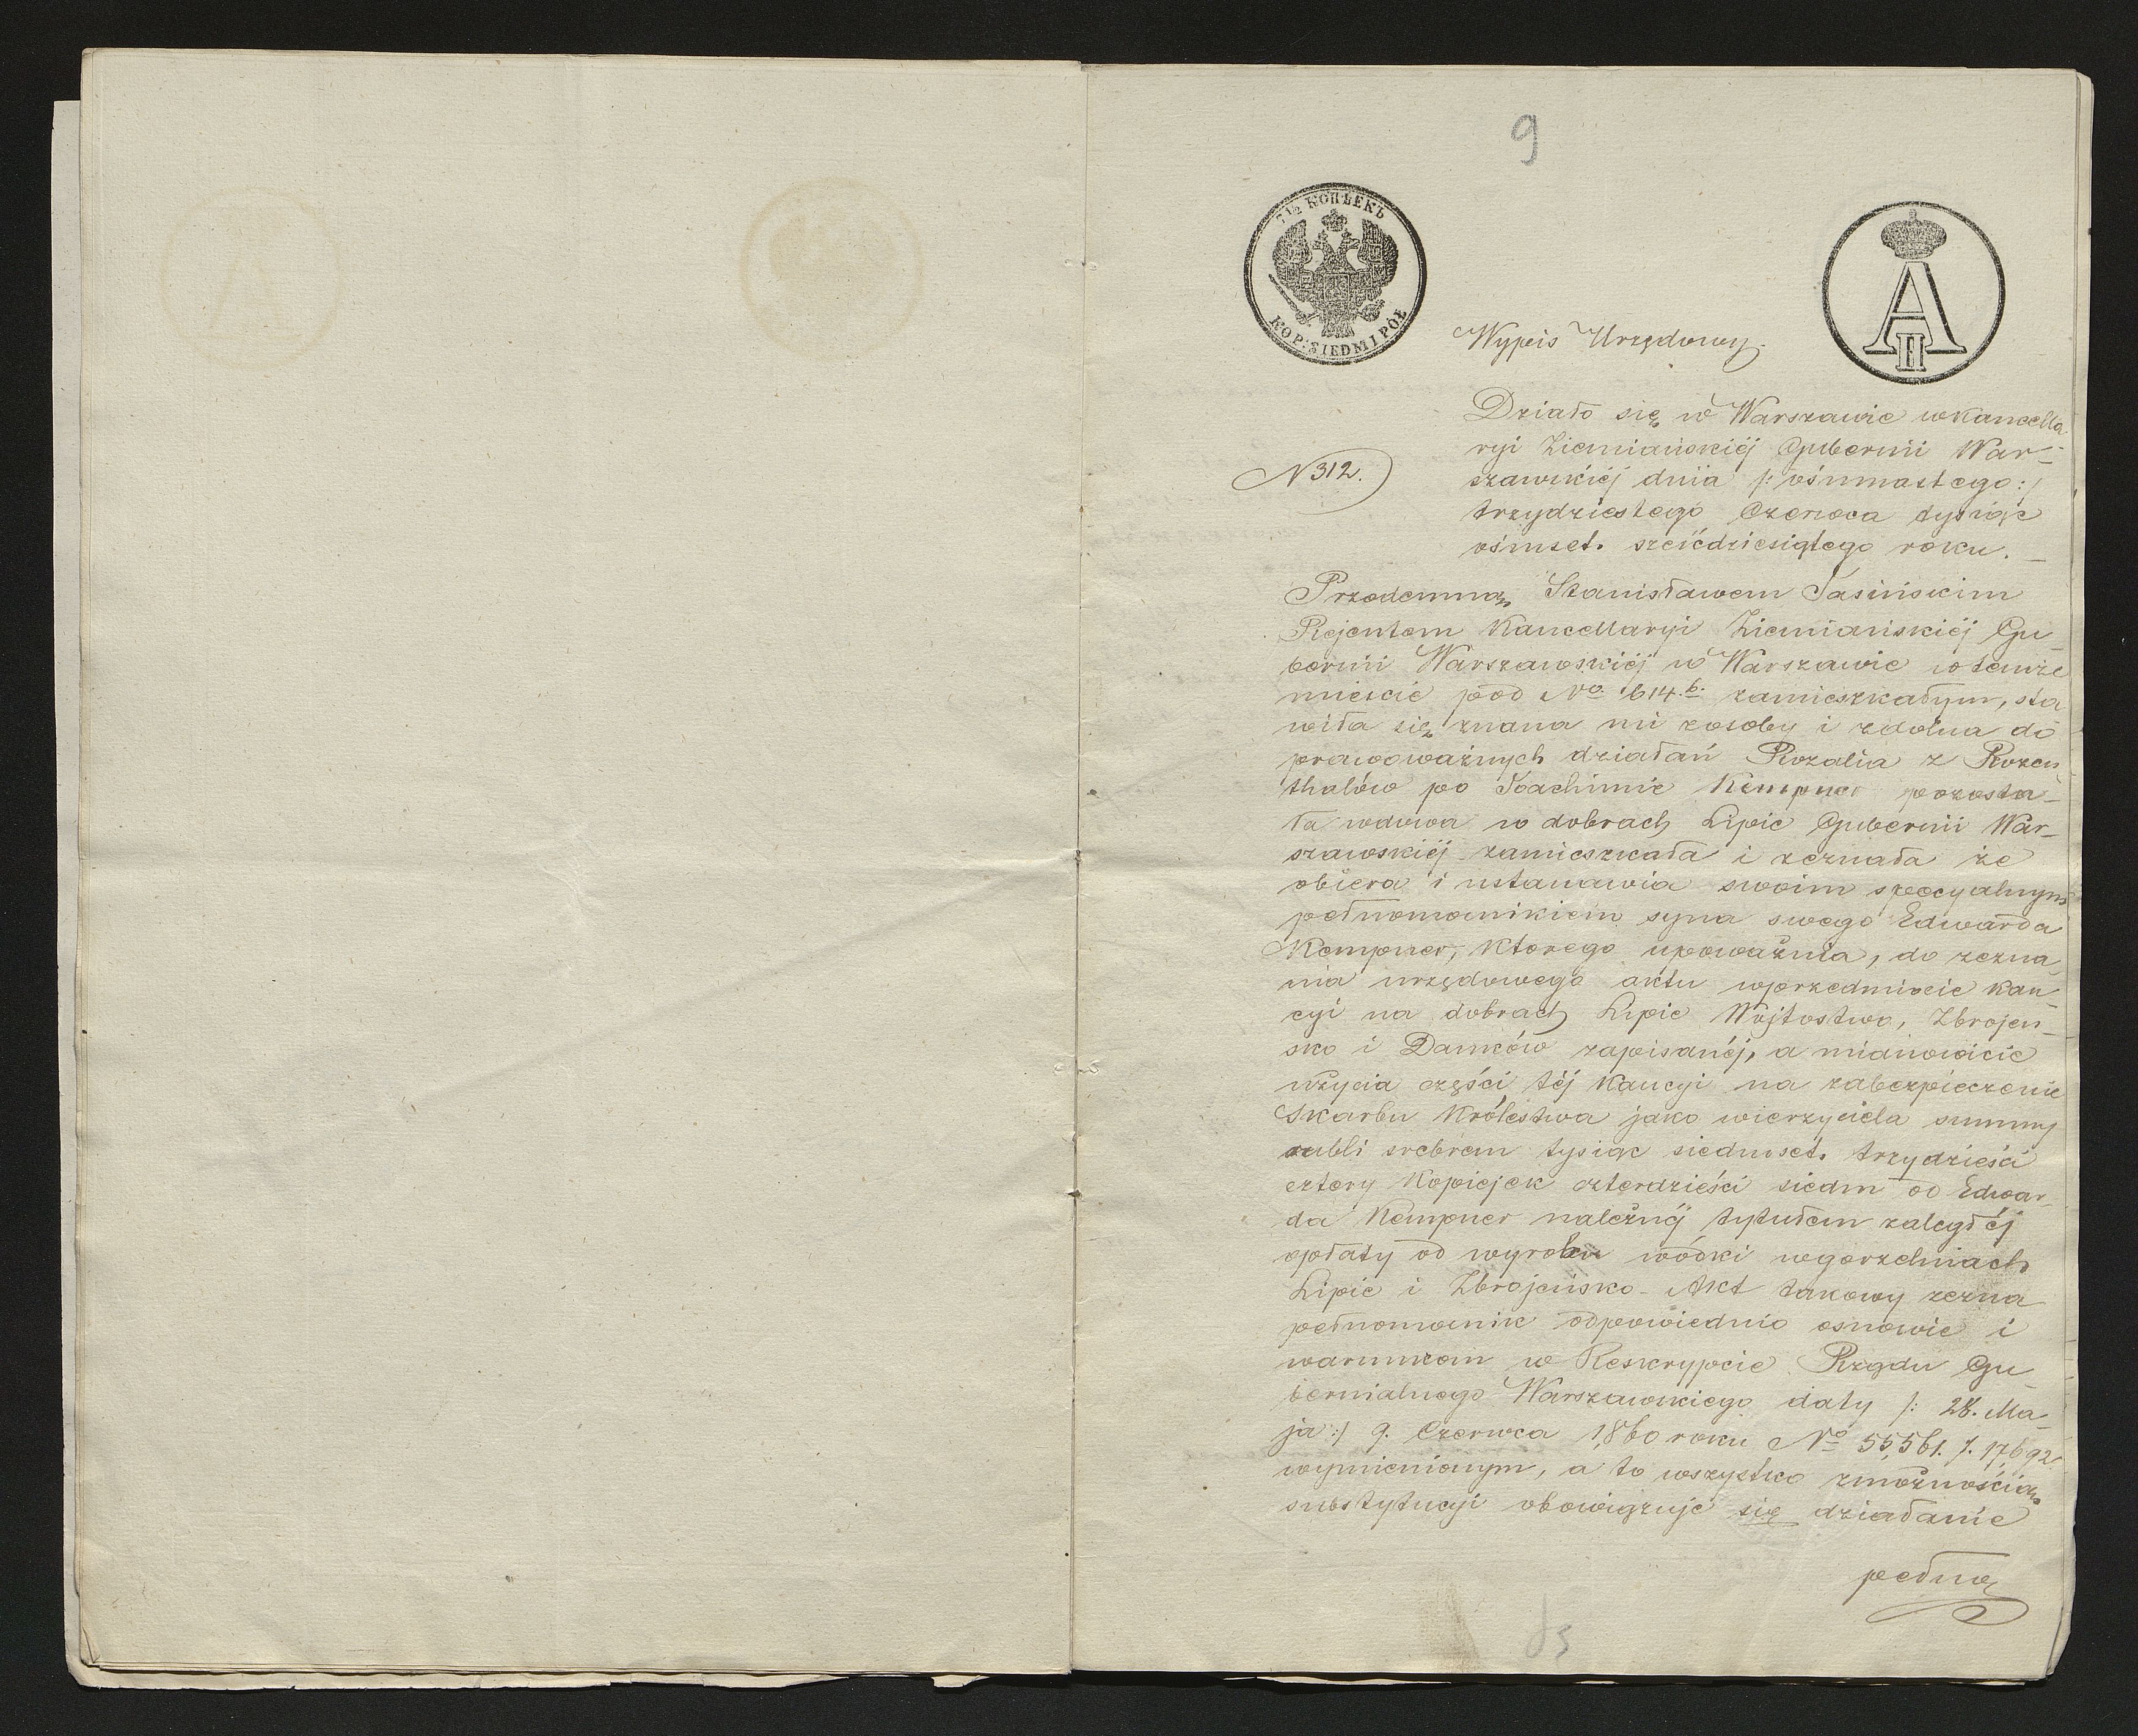 9
7½ КОПѢЕКЪ
KOP: SIEDM I PÓŁ
А
II
Wypis Urzędowy.
N 312.
Działo się w Warszawie w Kancella
ryi Ziemiańskiéj Gubernii War-
szawskiéj dnia /: ośmnastego :/
trzydziestego Czerwca tysiąc
ośmset sześćdziesiątego roku. _
Przedemną Stanisławem Jasińskim
Rejentem Kancellaryi Ziemiańskiéj Gu
bernii Warszawskiéj w Warszawie w temże
mieście pod No. 614.b. zamieszkałym, sta
wiła się znana mi z osoby i zdolna do
prawoważnych działań Rozalia z Rozen
thalów po Joachimie Kempner pozosta-
ła wdowa w dobrach Lipie Gubernii War-
szawskiéj zamieszkała i zeznała że
obiera i ustanawia swoim specyalnym
pełnomocnikiem syna swego Edwarda
Kempner, którego upoważnia, do zezna
nia urzędowego aktu w przedmiocie kau
cyi na dobrach Lipie Wójtostwo, Zbrojeń-
sko i Danków zapisanéj, a mianowicie
użycia części téj Kaucyi na zabezpieczenie
Skarbu Królestwa jako wierzyciela summy
rubli srebrem tysiąc siedmset trzydzieści
cztery Kopiejek czterdzieści siedm od Edwar
da Kempner należnéj tytułem zaległéj
opłaty od wyrobku wódki w gorzelniach
Lipie i Zbrojeńsko - Akt takowy zezna
pełnomocnik odpowiednio osnowie i
warunkom w Reskrypcie Rządu Gu
bernialnego Warszawskiego daty /: 28. Ma-
ja :/ 9. Czerwca 1860 roku No 55561. /. 17692.
wymienionym, a to wszystko z możnością
substytucyi obowiązuje się działanie
pełno